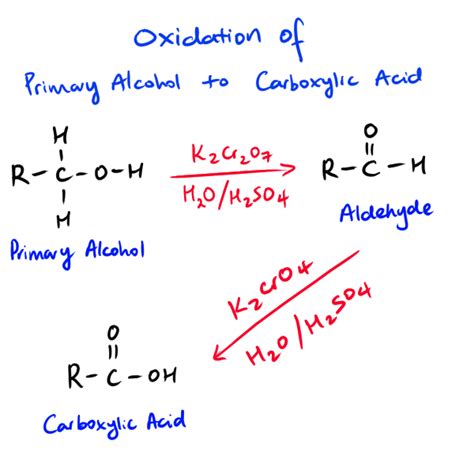 Oxidation of
Primary Alcohol to Carboxylic Acid
H
R-C-O-H
H
Primary Alcohol
K₂Cr₂O₇
H₂O/H₂SO₄
O
R-C-H
Aldehyde
K₂CrO₄
H₂O/H₂SO₄
O
R-C-OH
Carboxylic Acid